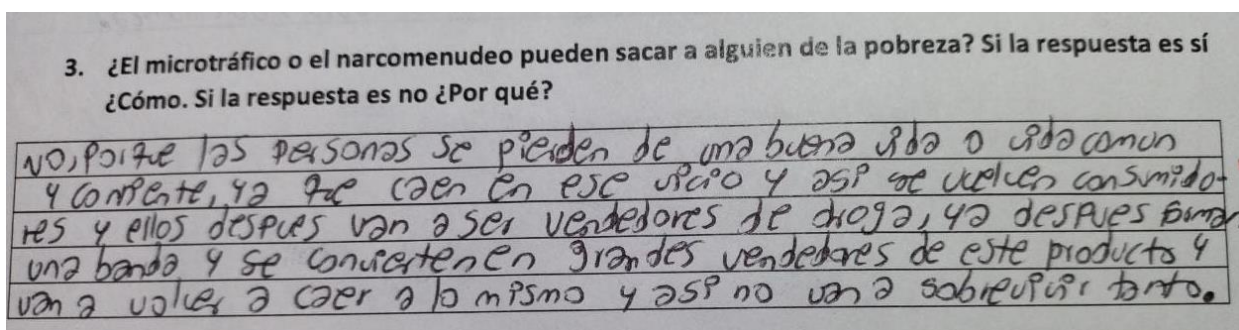 3. ¿El microtráfico o el narcomenudeo pueden sacar a alguien de la pobreza? Si la respuesta es sí
¿Cómo. Si la respuesta es no ¿Por qué?
NO, porque las personas se pierden de una buena vida o vida comun
y corriente, ya que caen en ese vicio y asi se vuelven consumido-
res y ellos despues van a ser vendedores de droga, ya despues forman
una banda y se convierten en grandes vendedores de este producto y
van a volver a caer a lo mismo y asi no van a sobrevivir tanto.